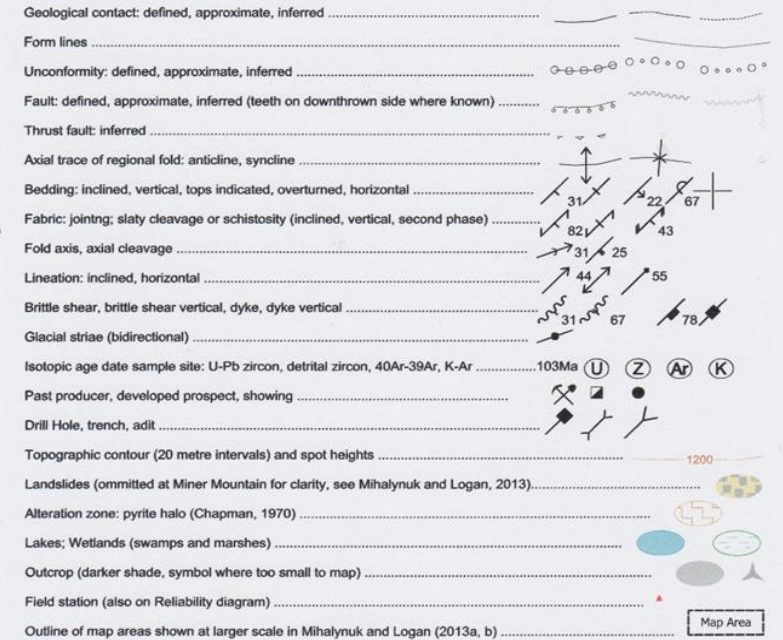 Geological contact: defined, approximate, inferred
Form lines
Unconformity: defined, approximate, inferred
Fault: defined, approximate, inferred (teeth on downthrown side where known)
Thrust fault: inferred
Axial trace of regional fold: anticline, syncline
Bedding: inclined, vertical, tops indicated, overturned, horizontal 31 22 67
Fabric: jointng; slaty cleavage or schistosity (inclined, vertical, second phase) 82 43
Fold axis, axial cleavage 31 25
Lineation: inclined, horizontal 44 55
Brittle shear, brittle shear vertical, dyke, dyke vertical 31 67 78
Glacial striae (bidirectional)
Isotopic age date sample site: U-Pb zircon, detrital zircon, 40Ar-39Ar, K-Ar 103Ma U Z Ar K
Past producer, developed prospect, showing
Drill Hole, trench, adit
Topographic contour (20 metre intervals) and spot heights 1200
Landslides (ommitted at Miner Mountain for clarity, see Mihalynuk and Logan, 2013)
Alteration zone: pyrite halo (Chapman, 1970)
Lakes; Wetlands (swamps and marshes)
Outcrop (darker shade, symbol where too small to map)
Field station (also on Reliability diagram)
Outline of map areas shown at larger scale in Mihalynuk and Logan (2013a, b) Map Area